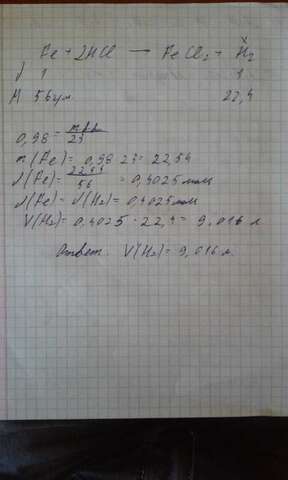 x
Fe + 2HCl → FeCl₂ + H₂
ν 1 1
M 56 22,4
0,98 = m Fe / 23
m(Fe) = 0,98·23 = 22,54
ν(Fe) = 22,54 / 56 = 0,4025 моль
ν(Fe) = ν(H₂) = 0,4025 моль
V(H₂) = 0,4025 · 22,4 = 9,016 л
Ответ: V(H₂) = 9,016 л.